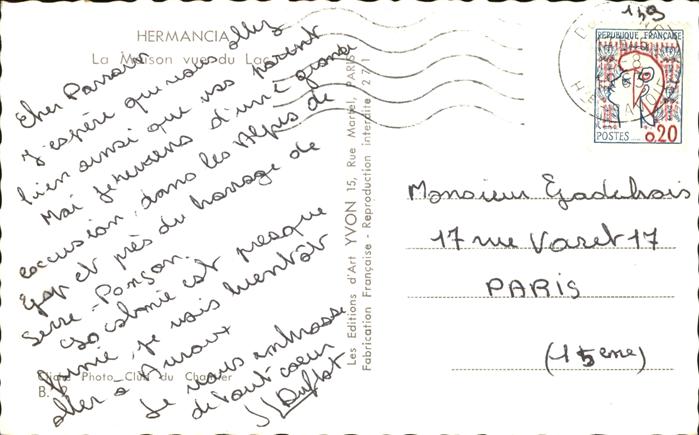 HERMANCIA
La Maison vue du Lac
Cher Parrain
J'espère que vous allez
bien ainsi que vos parent
Moi je reviens d'une grande
excursion, dans les Alpes de
Gap et près du barrage de
Serre-Ponçon.
La colonie est presque
finie, je vais bientôt
aller à Auroux
Je vous embrasse
de tout coeur
Cliché Photo Club du Chantier
B. P.
Les Editions d'Art YVON 15, Rue Martel, PARIS
Fabrication Française - Reproduction interdite 271
139
REPUBLIQUE FRANÇAISE
POSTES
0,20
Monsieur
17 rue Varet 17
PARIS
(15eme)